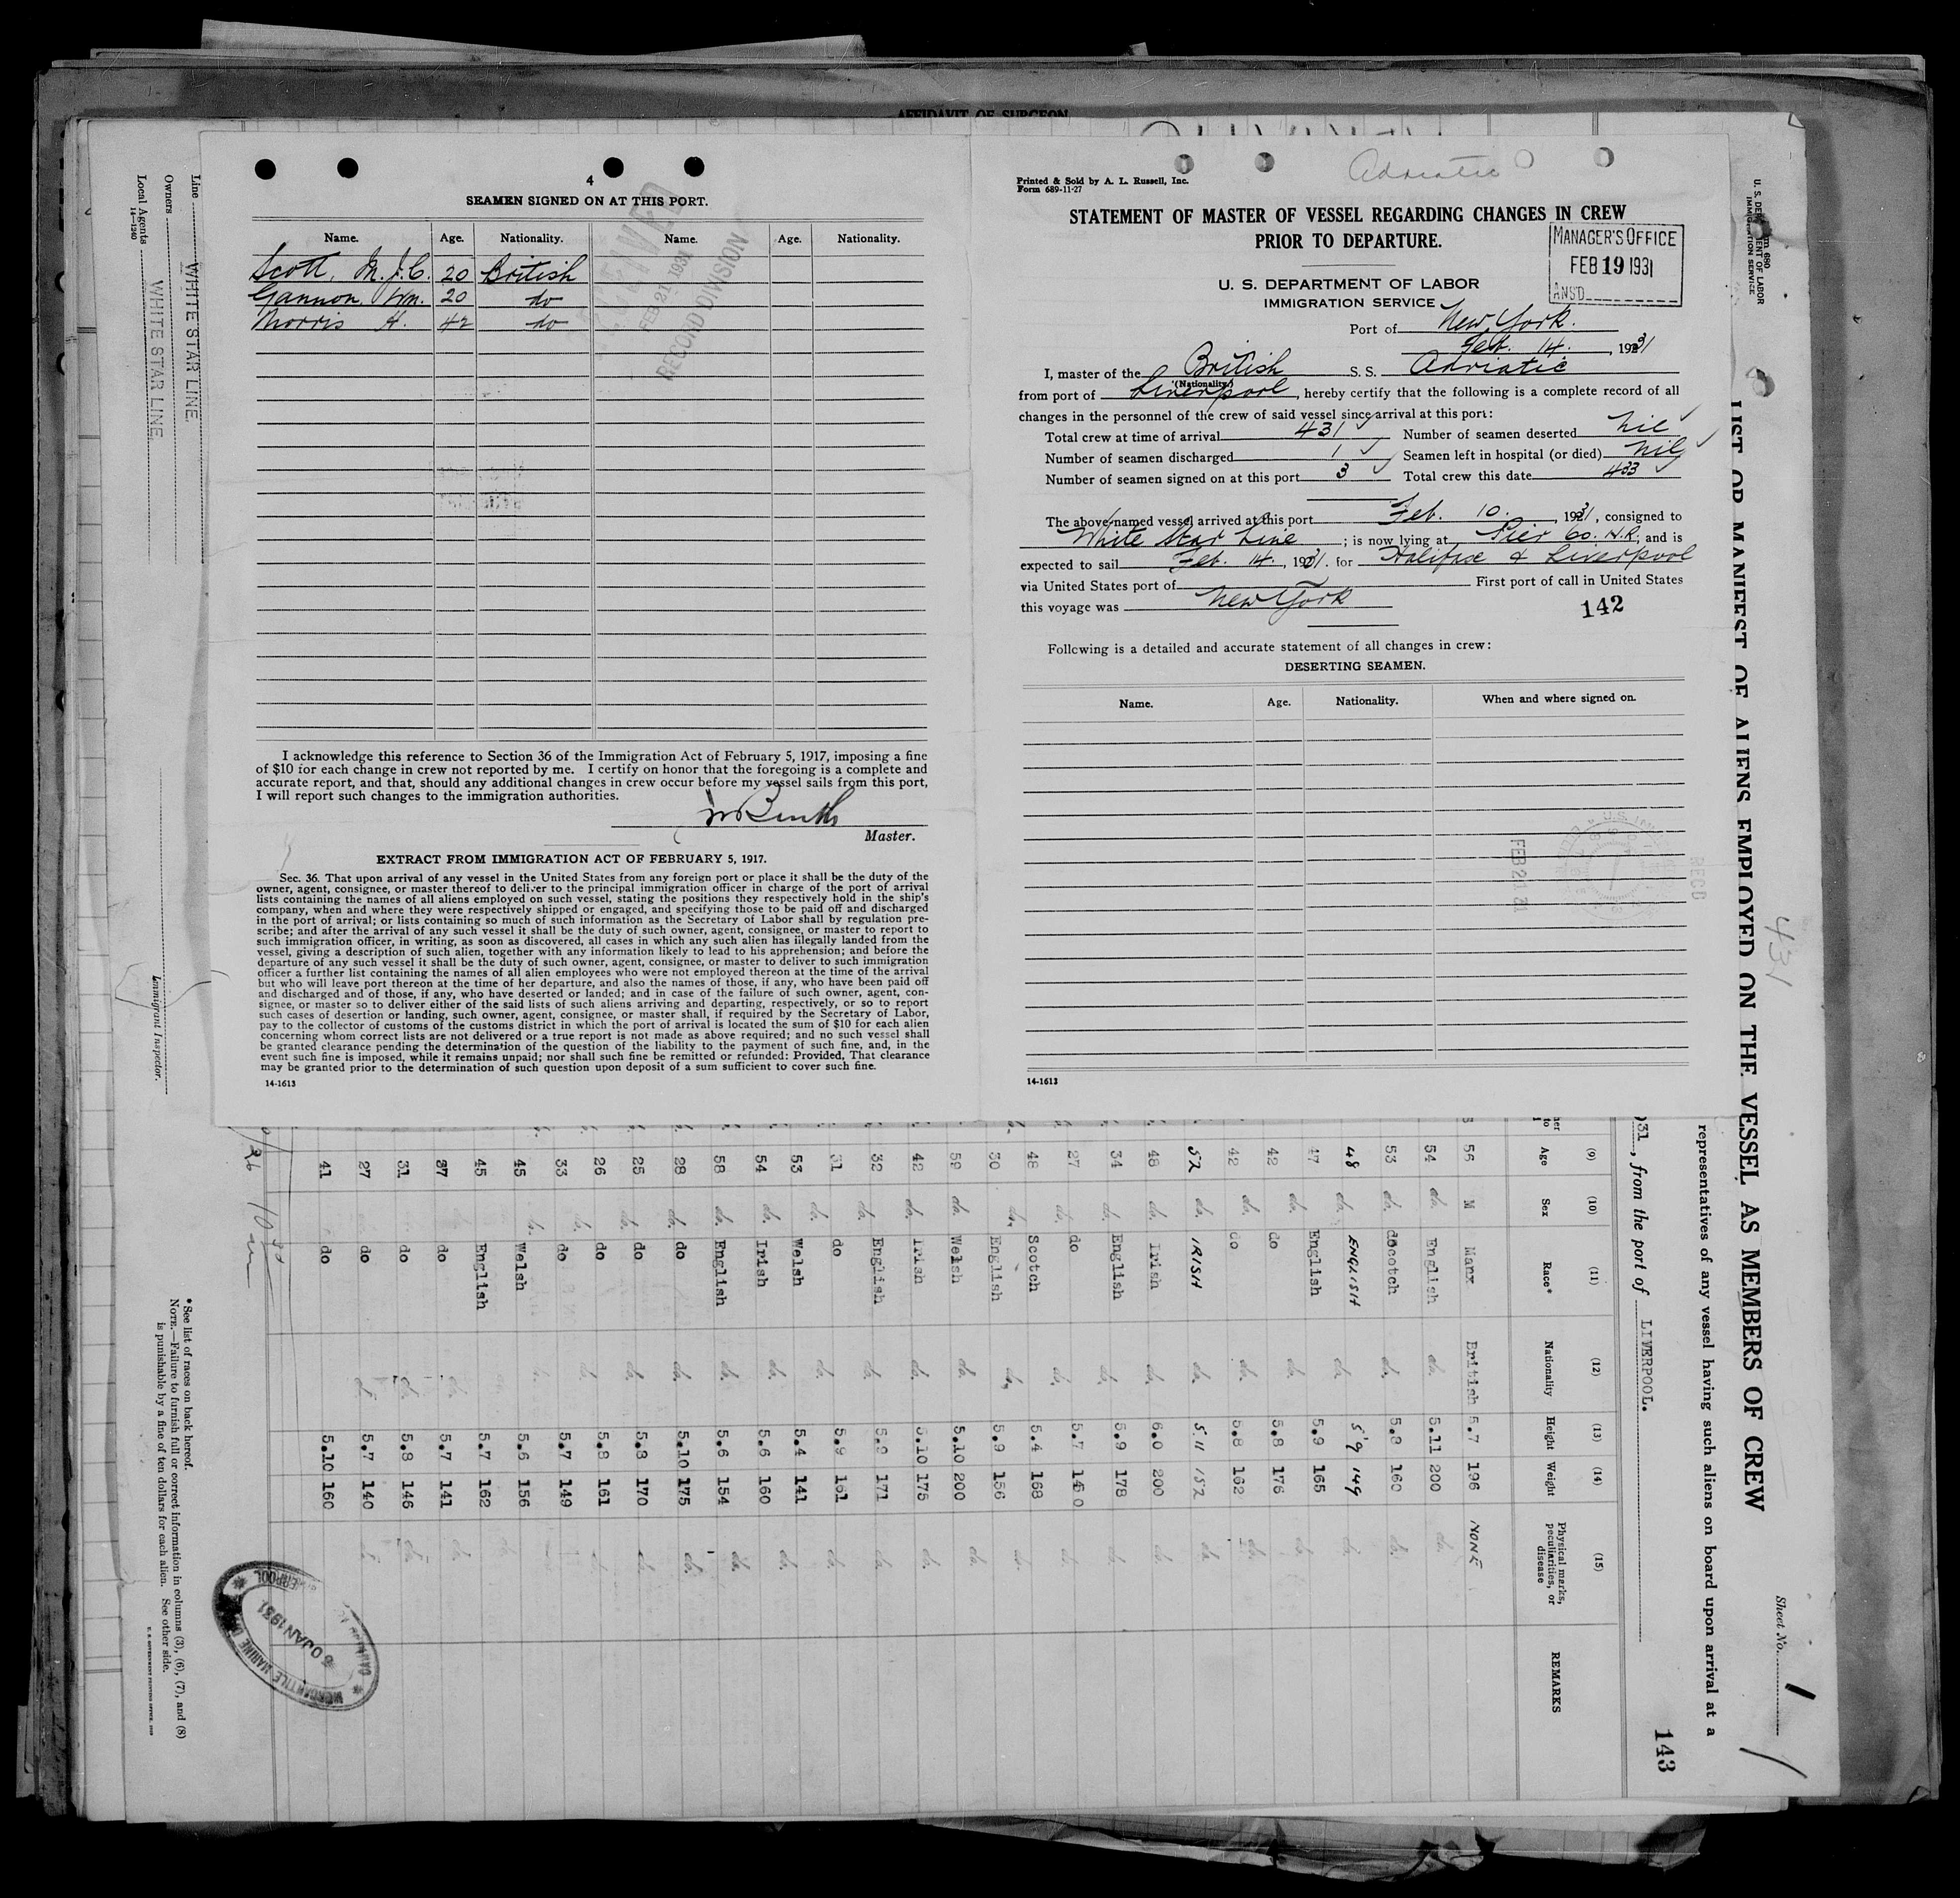 4
SEAMEN SIGNED ON AT THIS PORT.
Name. Age. Nationality. Name. Age. Nationality.
Scott, M. J. C. 20 British
Gannon, Wm. 20 do
Morris H. 42 do
FEB 21 1931
RECORD DIVISION
I acknowledge this reference to Section 36 of the Immigration Act of February 5, 1917, imposing a fine
of $10 for each change in crew not reported by me. I certify on honor that the foregoing is a complete and
accurate report, and that, should any additional changes in crew occur before my vessel sails from this port,
I will report such changes to the immigration authorities.
Master.
EXTRACT FROM IMMIGRATION ACT OF FEBRUARY 5, 1917.
Sec. 36. That upon arrival of any vessel in the United States from any foreign port or place it shall be the duty of the
owner, agent, consignee, or master thereof to deliver to the principal immigration officer in charge of the port of arrival
lists containing the names of all aliens employed on such vessel, stating the positions they respectively hold in the ship's
company, when and where they were respectively shipped or engaged, and specifying those to be paid off and discharged
in the port of arrival; or lists containing so much of such information as the Secretary of Labor shall by regulation pre-
scribe; and after the arrival of any such vessel it shall be the duty of such owner, agent, consignee, or master to report to
such immigration officer, in writing, as soon as discovered, all cases in which any such alien has illegally landed from the
vessel, giving a description of such alien, together with any information likely to lead to his apprehension; and before the
departure of any such vessel it shall be the duty of such owner, agent, consignee, or master to deliver to such immigration
officer a further list containing the names of all alien employees who were not employed thereon at the time of the arrival
but who will leave port thereon at the time of her departure, and also the names of those, if any, who have been paid off
and discharged and of those, if any, who have deserted or landed; and in case of the failure of such owner, agent, con-
signee, or master so to deliver either of the said lists of such aliens arriving and departing, respectively, or so to report
such cases of desertion or landing, such owner, agent, consignee, or master shall, if required by the Secretary of Labor,
pay to the collector of customs of the customs district in which the port of arrival is located the sum of $10 for each alien
concerning whom correct lists are not delivered or a true report is not made as above required; and no such vessel shall
be granted clearance pending the determination of the question of the liability to the payment of such fine, and, in the
event such fine is imposed, while it remains unpaid; nor shall such fine be remitted or refunded: Provided, That clearance
may be granted prior to the determination of such question upon deposit of a sum sufficient to cover such fine.
14-1613
Adriatic
Printed & Sold by A. L. Russell, Inc.
Form 689-11-27
STATEMENT OF MASTER OF VESSEL REGARDING CHANGES IN CREW
PRIOR TO DEPARTURE.
MANAGER'S OFFICE
FEB 19 1931
ANS'D
U. S. DEPARTMENT OF LABOR
IMMIGRATION SERVICE
Port of New York.
Feb. 14. , 1931
I, master of the British S. S. Adriatic
(Nationality)
from port of Liverpool, hereby certify that the following is a complete record of all
changes in the personnel of the crew of said vessel since arrival at this port:
Total crew at time of arrival 431 Number of seamen deserted Nil
Number of seamen discharged 1 Seamen left in hospital (or died) Nil
Number of seamen signed on at this port 3 Total crew this date 433
The above-named vessel arrived at this port Feb. 10. , 1931, consigned to
White Star Line ; is now lying at Pier 60. N.R., and is
expected to sail Feb. 14., 1931. for Halifax & Liverpool
via United States port of First port of call in United States
this voyage was New York
142
Following is a detailed and accurate statement of all changes in crew:
DESERTING SEAMEN.
Name. Age. Nationality. When and where signed on.
FEB 21 31
REC'D
14-1613
AFFIDAVIT OF SURGEON
Line WHITE STAR LINE.
Owners
Local Agents WHITE STAR LINE.
14-1240
Immigrant Inspector.
U. S. DEPARTMENT OF LABOR
IMMIGRATION SERVICE
LIST OR MANIFEST OF ALIENS EMPLOYED ON THE VESSEL AS MEMBERS OF CREW
431
Sheet No. 1
representatives of any vessel having such aliens on board upon arrival at a
31, from the port of LIVERPOOL.
143
(9) (10) (11) (12) (13) (14) (15)
Age Sex Race* Nationality Height Weight Physical marks, peculiarities, or disease REMARKS
56 M Manx British 5.7 196 NONE
54 do. English do. 5.11 200 do.
53 do. Scotch do. 5.9 160 do.
48 do. ENGLISH do. 5'9 149 do.
47 do. English do. 5.9 165 do.
42 do. do do. 5.8 176 do.
42 do. do do. 5.8 162 do.
52 do. IRISH do. 5 11 152 do.
48 do. Irish do. 6.0 200 do.
34 do. English do. 5.9 178 do.
27 do. do do. 5.7 140 do.
48 do. Scotch do. 5.4 168 do.
30 do. English do. 5.9 156 do.
59 do. Welsh do. 5.10 200 do.
42 do. Irish do. 5.10 175 do.
32 do. English do. 5.9 171 do.
31 do. do do. 5.9 161 do.
53 do. Welsh do. 5.4 141 do.
54 do. Irish do. 5.6 160 do.
58 do. English do. 5.6 154 do.
28 do. do do. 5.10 175 do.
25 do. do do. 5.8 170 do.
26 do. do do. 5.8 161 do.
33 do. do do. 5.7 149
45 do. Welsh do. 5.6 156
45 English 5.7 162 do.
37 do. do do. 5.7 141 do.
31 do. do do. 5.8 146 do.
27 do 5.7 140
41 do 5.10 160
*See list of races on back hereof.
NOTE.—Failure to furnish full or correct information in columns (3), (6), (7), and (8)
is punishable by a fine of ten dollars for each alien. See other side.
MERCANTILE MARINE
30 JAN 1931
LIVERPOOL